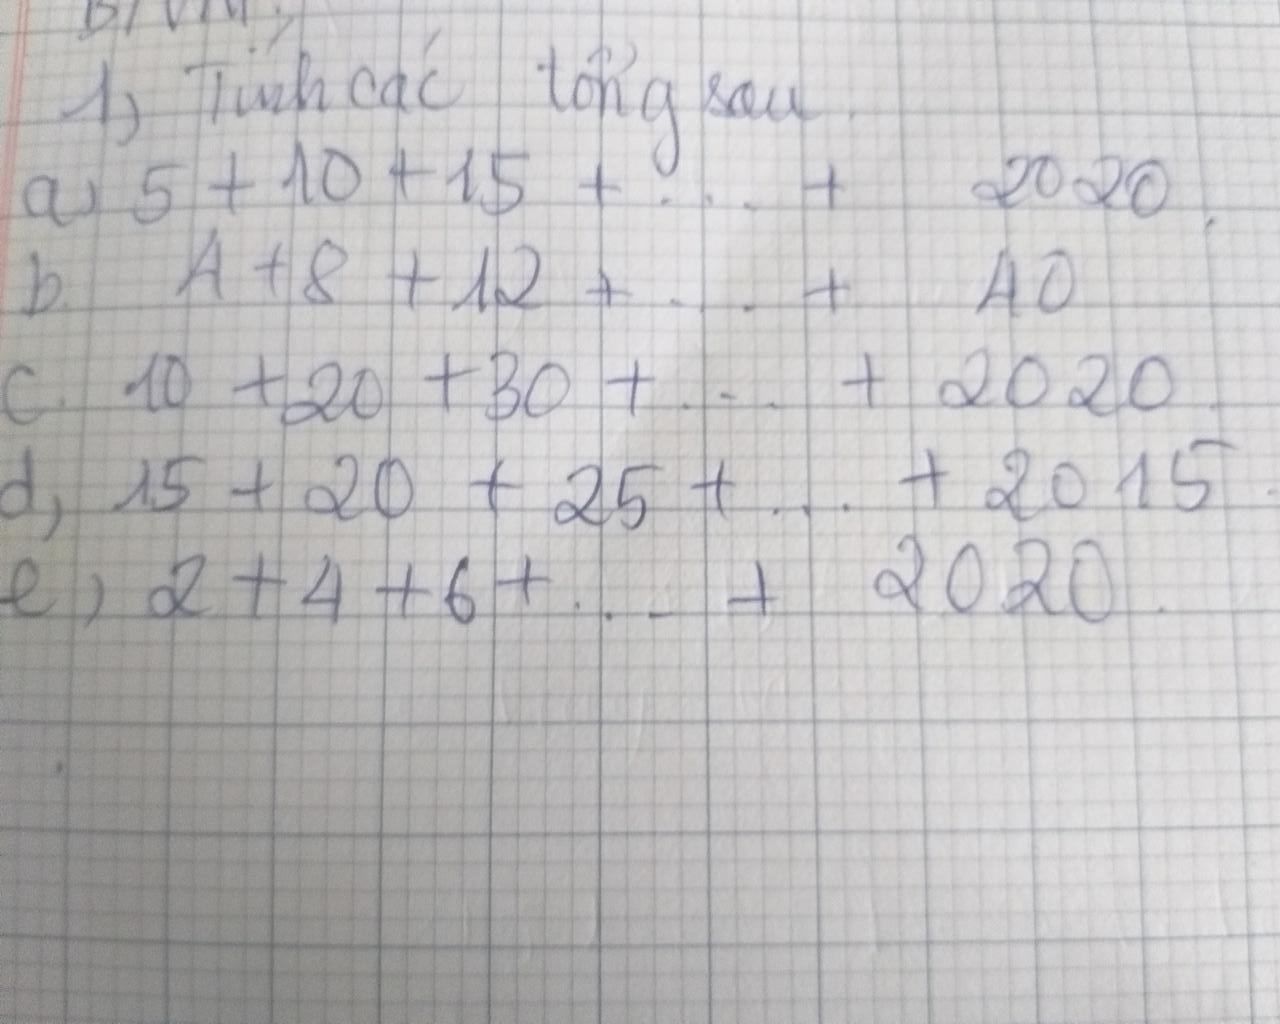 1, Tính các tổng sau
a, 5 + 10 + 15 + .... + 2020.
b. 4 + 8 + 12 + .... + 40
c. 10 + 20 + 30 + .... + 2020.
d, 15 + 20 + 25 + .... + 2015.
e, 2 + 4 + 6 + .... + 2020.